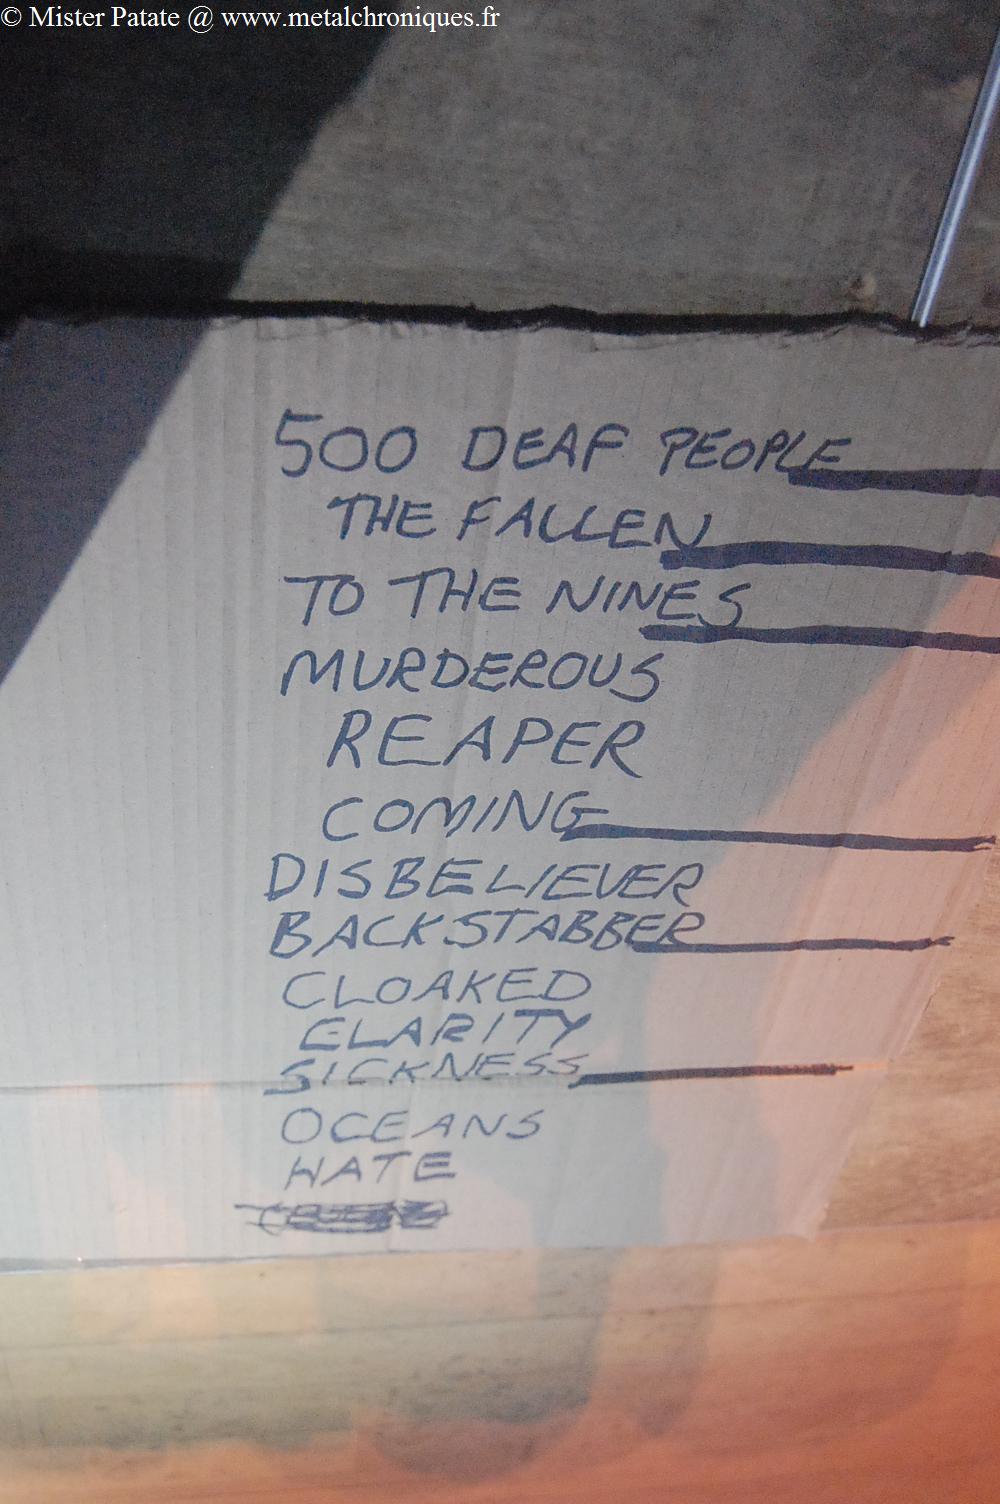 © Mister Patate @ www.metalchroniques.fr
500 DEAF PEOPLE
THE FALLEN
TO THE NINES
MURDEROUS
REAPER
COMING
DISBELIEVER
BACKSTABBER
CLOAKED
CLARITY
SICKNESS
OCEANS
HATE